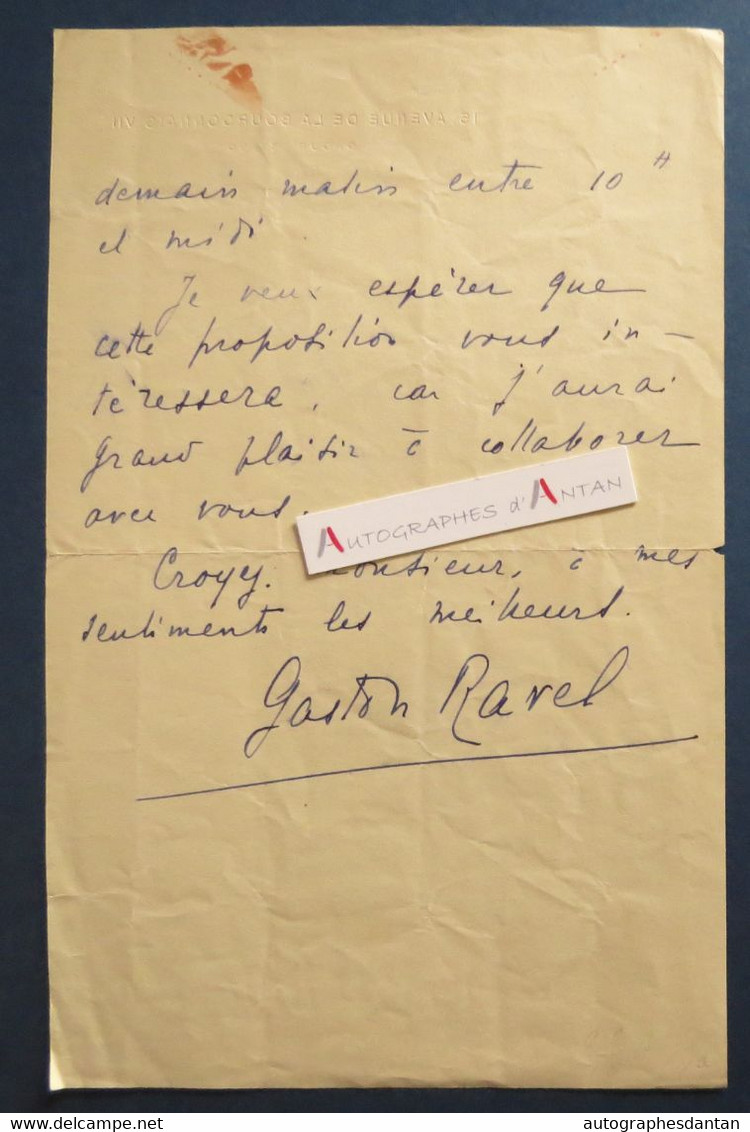 15, AVENUE DE LA BOURDONNAIS VII
demain matin entre 10 H
et midi
Je veux espérer que
cette proposition vous in-
téressera, car j'aurai
grand plaisir à collaborer
avec vous.
AUTOGRAPHES d'ANTAN
Croyez, Monsieur, à mes
sentiments les meilleurs.
Gaston Ravel
Delcampe.net
autographesdantan